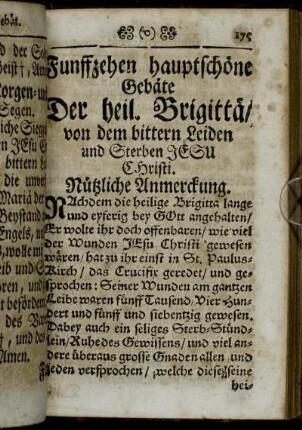 (o) 175
Funffzehen hauptschöne
Gebäte
Der heil. Brigittä/
von dem bittern Leiden
und Sterben JESU
CHristi.
Nützliche Anmerckung.
NAchdem die heilige Brigitta lange
und eyferig bey GOtt angehalten/
Er wolte ihr doch offenbaren/ wie viel
der Wunden JEsu Christi gewesen
wären/ hat zu ihr einst in St. Paulus-
Kirch/ das Crucifix geredet/ und ge-
sprochen: Seiner Wunden am gantzen
Leibe waren fünff Tausend/ Vier Hun-
dert und fünff und siebentzig gewesen.
Dabey auch ein seliges Sterb-Stünd-
lein/ Ruhe des Gewissens/ und viel an-
dere überaus grosse Gnaden allen und
jeden versprochen/ welche diese seine
hei-
ebät.
Morgen-
Segen.
JEsu
bittern
Maria
Beystand
Engels,
und
des
Amen.